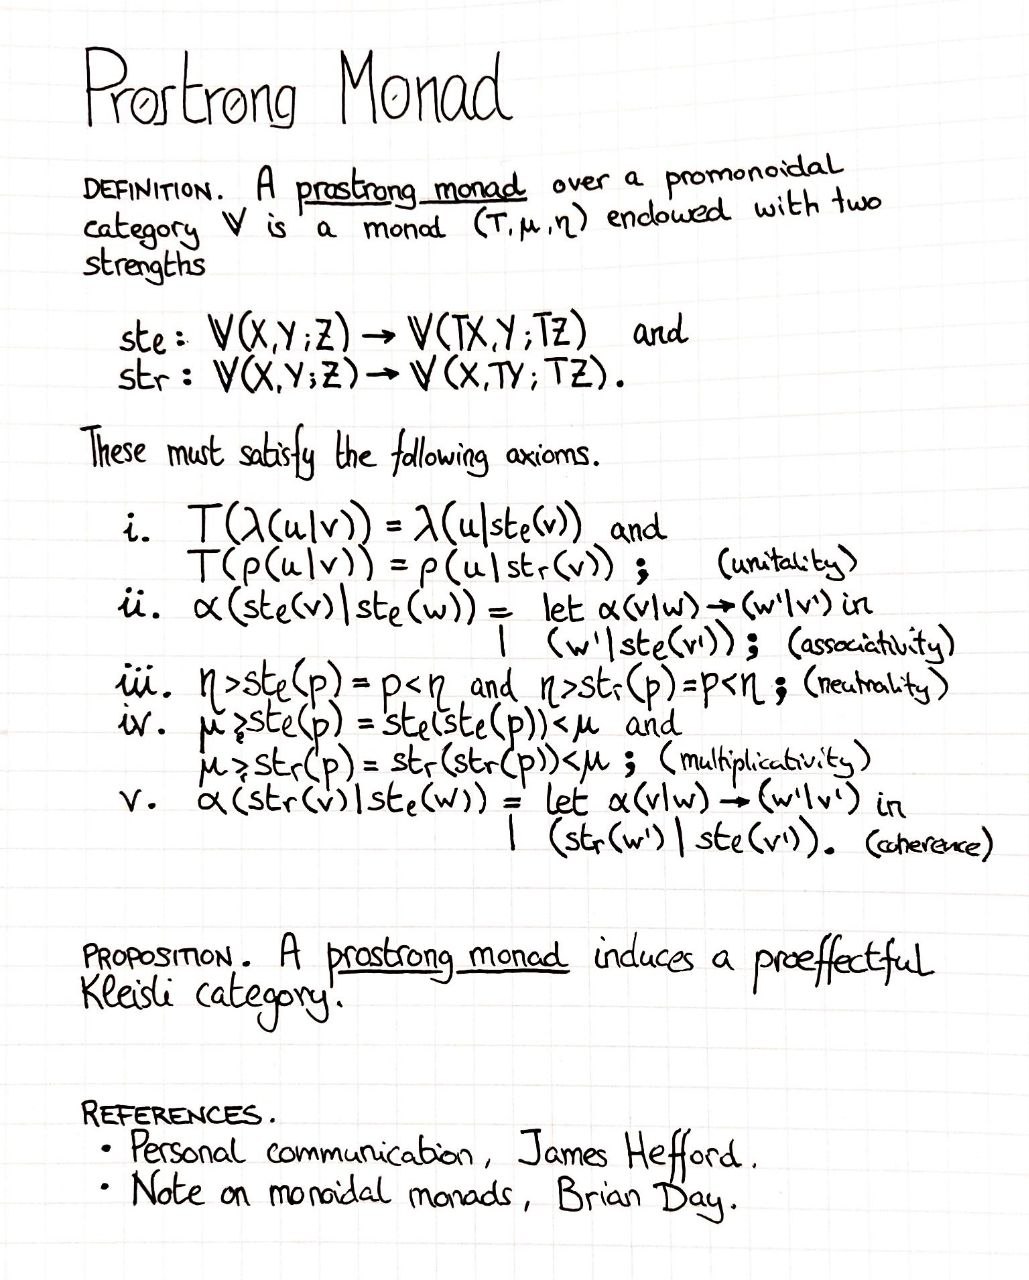 Prostrong Monad
DEFINITION. A prostrong monad over a promonoidal
category 𝕍 is a monad (T,μ,η) endowed with two
strengths
ste: 𝕍(X,Y;Z) → 𝕍(TX,Y;TZ) and
str: 𝕍(X,Y;Z) → 𝕍(X,TY;TZ).
These must satisfy the following axioms.
i. T(λ(u|v)) = λ(u|ste(v)) and
T(ρ(u|v)) = ρ(u|str(v)); (unitality)
ii. α(ste(v)|ste(w)) = let α(v|w) → (w'|v') in
| (w'|ste(v')); (associativity)
iii. η>ste(p) = p<η and η>str(p)=p<η; (neutrality)
iv. μ⩾ste(p) = ste(ste(p))<μ and
μ⩾str(p) = str(str(p))<μ; (multiplicativity)
v. α(str(v)|ste(w)) = let α(v|w) → (w'|v') in
| (str(w')|ste(v')). (coherence)
PROPOSITION. A prostrong monad induces a proeffectful
Kleisli category.
REFERENCES.
• Personal communication, James Hefford.
• Note on monoidal monads, Brian Day.